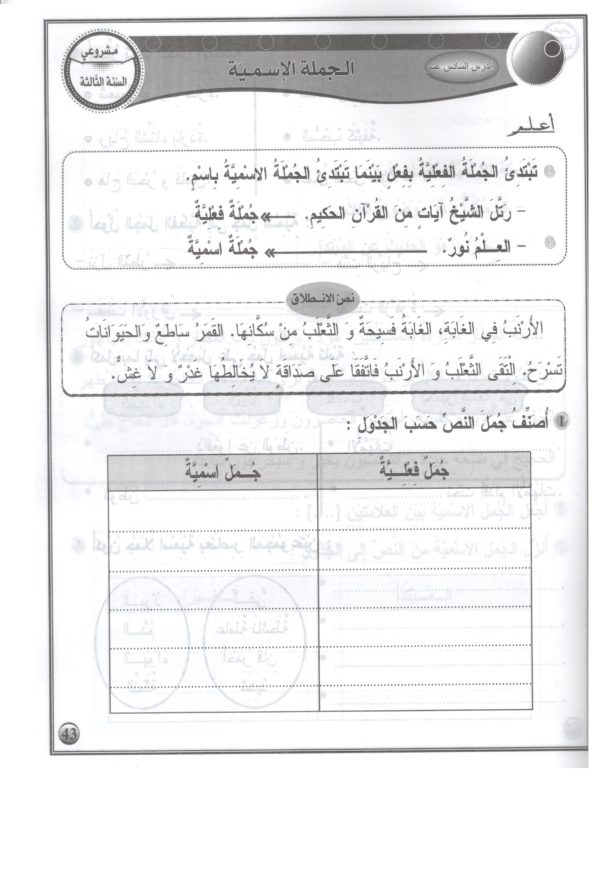 مشروعي
السنة الثالثة
الجملة الإسمية
الدرس السادس عشر
أعلم
تَبْتَدِئُ الجُمْلَةُ الفِعْلِيَّةُ بِفِعْلٍ بَيْنَمَا تَبْتَدِئُ الجُمْلَةُ الاسْمِيَّةُ بِاسْمٍ.
– رَتَّلَ الشَّيْخُ آيَاتٍ مِنَ القُرْآنِ الحَكِيمِ. جُمْلَةٌ فِعْلِيَّةٌ
– العِلْمُ نُورٌ. جُمْلَةٌ اسْمِيَّةٌ
نص الانطلاق
الأَرْنَبُ فِي الغَابَةِ، الغَابَةُ فَسِيحَةٌ وَ الثَّعْلَبُ مِنْ سُكَّانِهَا. القَمَرُ سَاطِعٌ وَالحَيَوَانَاتُ
تَسْرَحُ. الْتَقَى الثَّعْلَبُ وَ الأَرْنَبُ فَاتَّفَقَا عَلَى صَدَاقَةٍ لاَ يُخَالِطُهَا غَدْرٌ وَ لاَ غِشٌّ.
1 أُصَنِّفُ جُمَلَ النَّصِّ حَسَبَ الجَدْوَلِ :
جُمَلٌ فِعْلِيَّةٌ جُمَلٌ اسْمِيَّةٌ
43